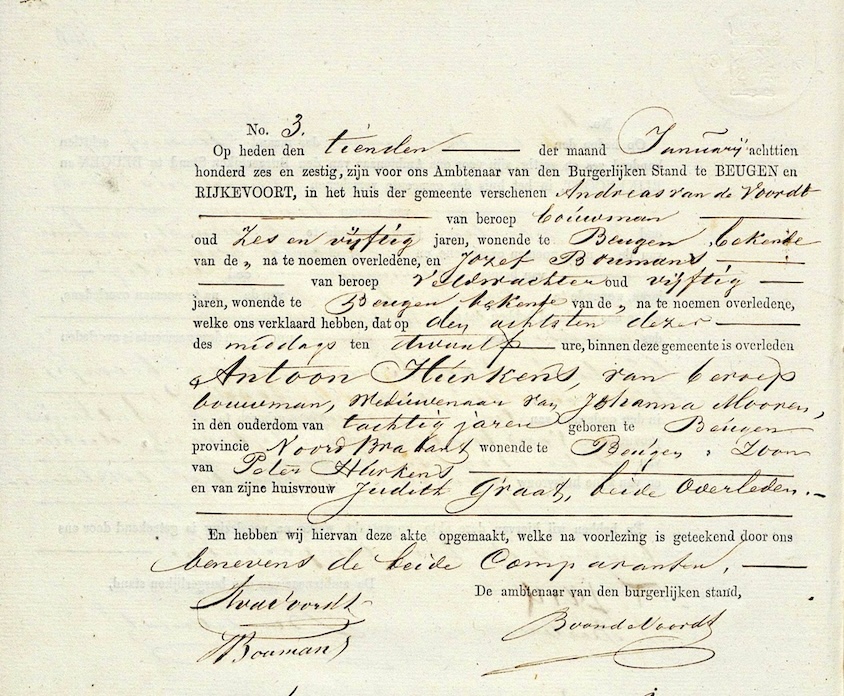 No. 3.
Op heden den tienden der maand Januarij achttien
honderd zes en zestig, zijn voor ons Ambtenaar van den Burgerlijken Stand te BEUGEN en
RIJKEVOORT, in het huis der gemeente verschenen Andreas van de Voordt
van beroep bouwman
oud Zes en vijftig jaren, wonende te Beugen, bekende
van de „ na te noemen overledene, en Jozef Boumans
van beroep Veldwachter oud vijftig
jaren, wonende te Beugen bekende van de „ na te noemen overledene,
welke ons verklaard hebben, dat op den achtsten dezer
des middags ten twaalf ure, binnen deze gemeente is overleden
Antoon Hurkens, van beroep
bouwman, Weduwenaar van Johanna Mooren,
in den ouderdom van tachtig jaren geboren te Beugen
provincie Noord Brabant wonende te Beugen, Zoon
van Peter Hurkens
en van zijne huisvrouw Judith Graat, beide Overleden.
En hebben wij hiervan deze akte opgemaakt, welke na voorlezing is geteekend door ons
benevens de beide Comparanten.
De ambtenaar van den burgerlijken stand,
AvdeVoordt
BvandeVoordt
JBoumans